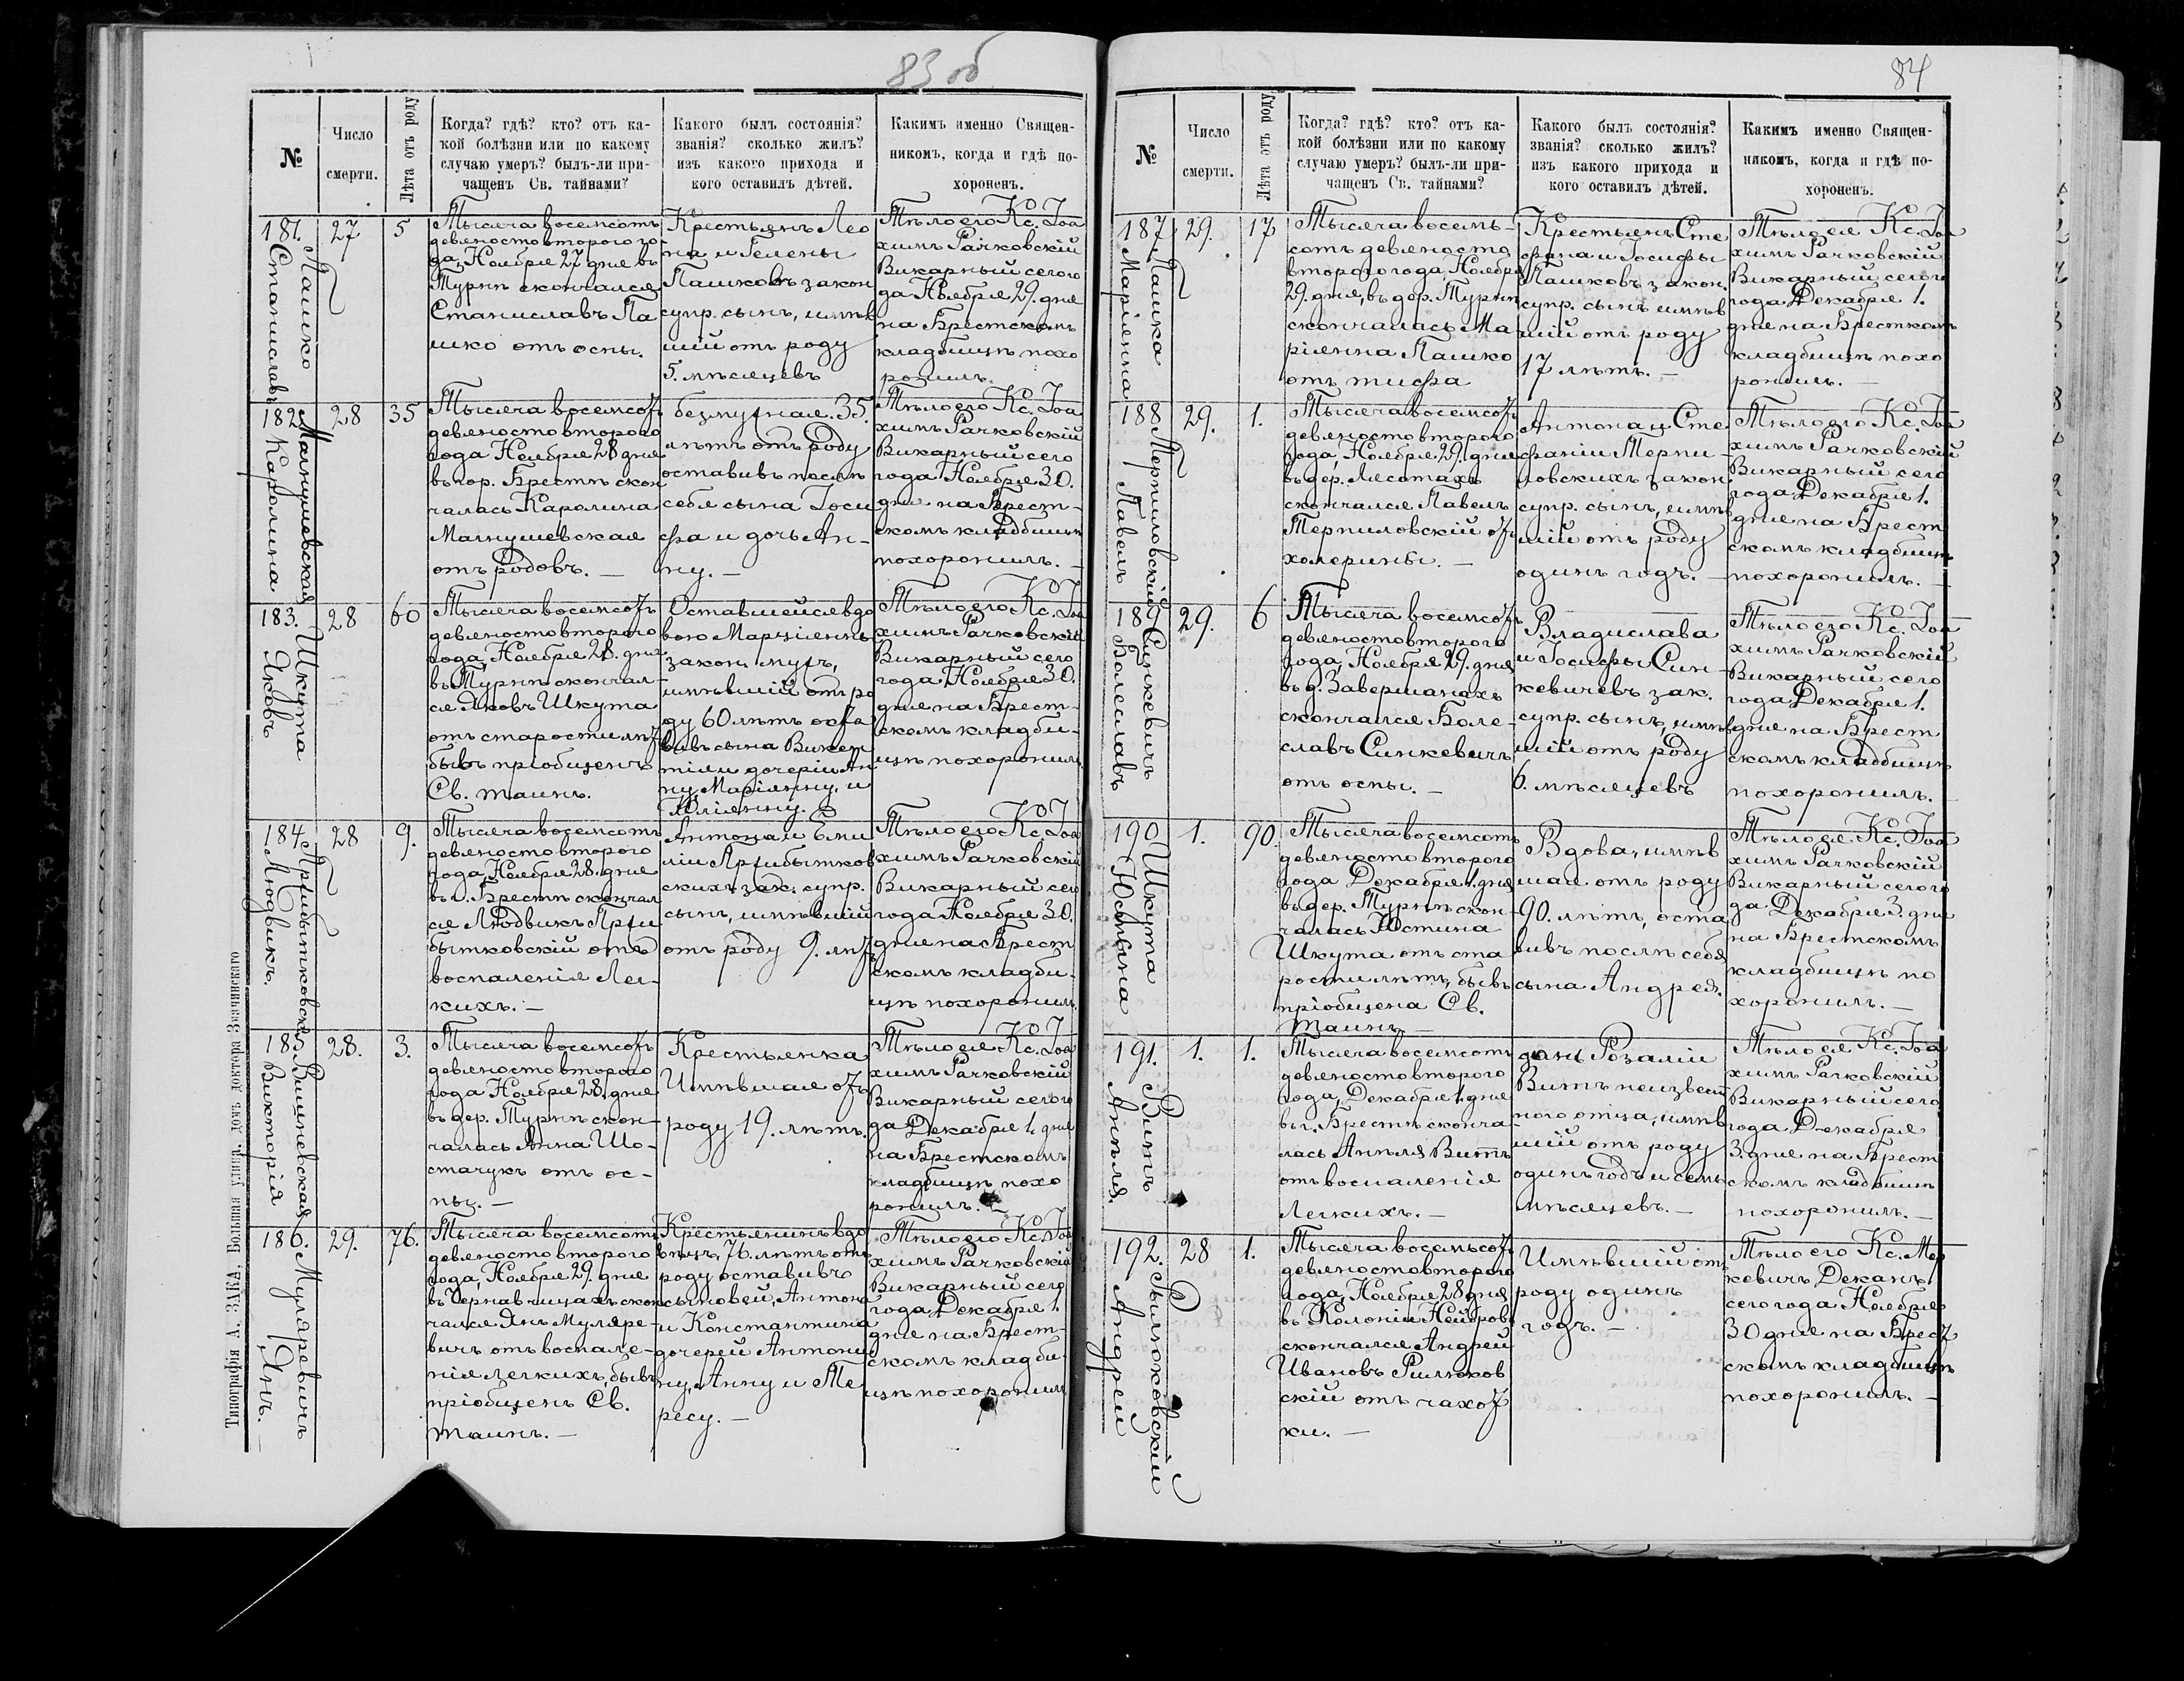 83 об
№
Число
смерти.
Лѣта отъ роду
Когда? гдѣ? кто? отъ ка-
кой болѣзни или по какому
случаю умеръ? былъ-ли при-
чащенъ Св. тайнами?
Какого былъ состоянія?
званія? сколько жилъ?
изъ какого прихода и
кого оставилъ дѣтей.
Какимъ именно Священ-
никомъ, когда и гдѣ по-
хороненъ.
181.
Пашко
Станиславъ
27
5
Тысяча восемсотъ
девяносто второго го
да, Ноября 27 дня въ
Турнѣ скончался
Станиславъ Па
шко отъ оспы.
Крестьянъ Лео
на и Гелены
Пашковъ закон
супр. сынъ, имѣв
шій отъ роду
5. мѣсяцевъ
Тѣло его Кс. Іоа
химъ Рачковскій
Викарный сего го
да Ноября 29. дня
на Брестскомъ
кладбищѣ похо
ронилъ.
182
Магнушевская
Каролина
28
35
Тысяча восемсотъ
девяносто второго
года Ноября 28 дня
въ гор. Брестѣ скон
чалась Каролина
Магнушевская
отъ родовъ. —
безмужная. 35.
лѣтъ отъ роду
оставивъ послѣ
себя сына Іоси
фа и дочь Ан-
ну. —
Тѣло его Кс. Іоа
химъ Рачковскій
Викарный сего
года Ноября 30.
дня на Брест-
скомъ кладбищѣ
похоронилъ. —
183.
Шкута
Яковъ
28
60
Тысяча восемсотъ
девяносто второго
года, Ноября 28. дня
въ Турнѣ скончал-
ся Яковъ Шкута
отъ старости лѣтъ
бывъ пріобщенъ
Св. таинъ.
Оставшейся вдо
вою Марціянны
закон. мужъ,
имѣвшій отъ ро
ду 60 лѣтъ оста
вивъ сына Викен
тія и дочеріи Ан
ну, Маріянну, и
Юліянну.
Тѣло его Кс. Іоа
химъ Рачковскій
Викарный сего
года, Ноября 30.
дня на Брест-
скомъ кладби-
щѣ похоронилъ.
184.
Пршибытковскій
Людвикъ.
28
9.
Тысяча восемсотъ
девяносто второго
года, Ноября 28. дня
въ г. Брестѣ скончал
ся Людвикъ Прши
бытковскій отъ
воспаленія Лег-
кихъ. —
Антона и Еми
ліи Пршибытков
скихъ зак. супр.
сынъ, имѣвшій
отъ роду 9. лѣтъ
Тѣло его Кс. Іоа
химъ Рачковскій
Викарный сего
года Ноября 30.
дня на Брест
скомъ кладби-
щѣ похоронилъ.
185.
Вишневская
Викторія
28.
3.
Тысяча восемсотъ
девяносто второго
года Ноября 28. дня
въ дер. Турнѣ скон-
чалась Анна Шо-
стачукъ отъ ос-
пы. —
Крестьянка
Имѣвшая отъ
роду 19. лѣтъ.
Тѣло ея Кс. Іоа
химъ Рачковскій
Викарный сего го
да Декабря 1. дня
на Брестскомъ
кладбищѣ похо
ронилъ. —
186.
Муляревичъ
Янъ. —
29.
76.
Тысяча восемсотъ
девяносто второго
года, Ноября 29. дня
въ Чернавчицахъ скон
чался Янъ Муляре-
вичъ отъ воспале-
нія легкихъ, бывъ
пріобщенъ Св.
таинъ. —
Крестьянинъ вдо
вецъ, 76. лѣтъ отъ
роду оставивъ
сыновей, Антона
и Константина
дочерей Антони
ну, Анну и Те
ресу. —
Тѣло его Кс. Іоа
химъ Рачковскій
Викарный сего
года, Декабря 1.
дня на Брест-
скомъ кладби-
щѣ похоронилъ
Типографія А. ЗАКА, Вольная улица, домъ доктора Значинскаго
84
№
Число
смерти.
Лѣта отъ роду
Когда? гдѣ? кто? отъ ка-
кой болѣзни или по какому
случаю умеръ? былъ-ли при-
чащенъ Св. тайнами?
Какого былъ состоянія?
званія? сколько жилъ?
изъ какого прихода и
кого оставилъ дѣтей.
Какимъ именно Священ-
никомъ, когда и гдѣ по-
хороненъ.
187
Пашка
Маріенна
29.
17
Тысяча восемь-
сотъ девяносто
второго года, Ноября
29. дня, въ дер. Турнѣ
скончалась Ма
ріянна Пашко
отъ тифа
Крестьянъ Сте
фана и Іосифы
Пашковъ закон.
супр. сынъ имѣв
шій отъ роду
17 лѣтъ. —
Тѣло ея Кс. Іоа
химъ Рачковскій
Викарный сего
года Декабря 1.
дня на Бресткомъ
кладбищѣ похо
ронилъ. —
188
Терпиловскій
Павелъ
29.
1.
Тысяча восемсотъ
девяносто второго
года, Ноября 29. дня
въ дер. Лясотахъ
скончался Павелъ
Терпиловскій отъ
холерины. —
Антона и Сте
фаніи Терпи-
ловскихъ закон.
супр. сынъ, имѣв
шій отъ роду
одинъ годъ. —
Тѣло его Кс. Іоа
химъ Рачковскій
Викарный сего
года, Декабря 1.
дня на Брест
скомъ кладбищѣ
похоронилъ. —
189
Синкевичъ
Болеславъ
29.
6
Тысяча восемсотъ
девяносто второго
года, Ноября 29. дня
въ д. Завершанахъ
скончался Боле-
славъ Синкевичъ
отъ оспы. —
Владислава
и Іосифы Син-
кевичевъ зак.
супр. сынъ, имѣв
шій отъ роду
6. мѣсяцевъ
Тѣло его Кс. Іоа
химъ Рачковскій
Викарный сего
года, Декабря 1.
дня на Брест
скомъ кладбищѣ
похоронилъ. —
190
Шкута
Юстына
1.
90.
Тысяча восемсотъ
девяносто второго
года Декабря 1. дня
въ дер. Турнѣ скон-
чалась Юстина
Шкута отъ ста
рости лѣтъ, бывъ
пріобщена Св.
Таинъ. —
Вдова, имѣв
шая отъ роду
90. лѣтъ, оста
вивъ послѣ себя
сына Андрея.
Тѣло ея Кс. Іоа
химъ Рачковскій
Викарный сего го
да Декабря 3. дня
на Брестскомъ
кладбищѣ по
хоронилъ. —
191.
Витъ
Анѣля.
1.
1.
Тысяча восемсотъ
девяносто второго
года, Декабря 1. дня
въ г. Брестѣ сконча
лась Анѣля Витъ
отъ воспаленія
Легкихъ. —
дочь Розаліи
Витъ неизвест
ного отца, имѣв
шій отъ роду
одинъ годъ и семь
мѣсяцевъ. —
Тѣло ея Кс. Іоа
химъ Рачковскій
Викарный сего
года Декабря
3. дня на Брест
скомъ кладбищѣ
похоронилъ. —
192.
Рилюковскій
Андрей
28
1.
Тысяча восемьсотъ
девяносто второго
года, Ноября 28 дня
въ Колоніи Нейбровъ
скончался Андрей
Ивановъ Рилюков
скій отъ чахот
ки. —
Имѣвшій отъ
роду одинъ
годъ. —
Тѣло его Кс. Мер
кевичъ, Деканъ
сего года Ноября
30 дня на Брест
скомъ кладбищѣ
похоронилъ. —